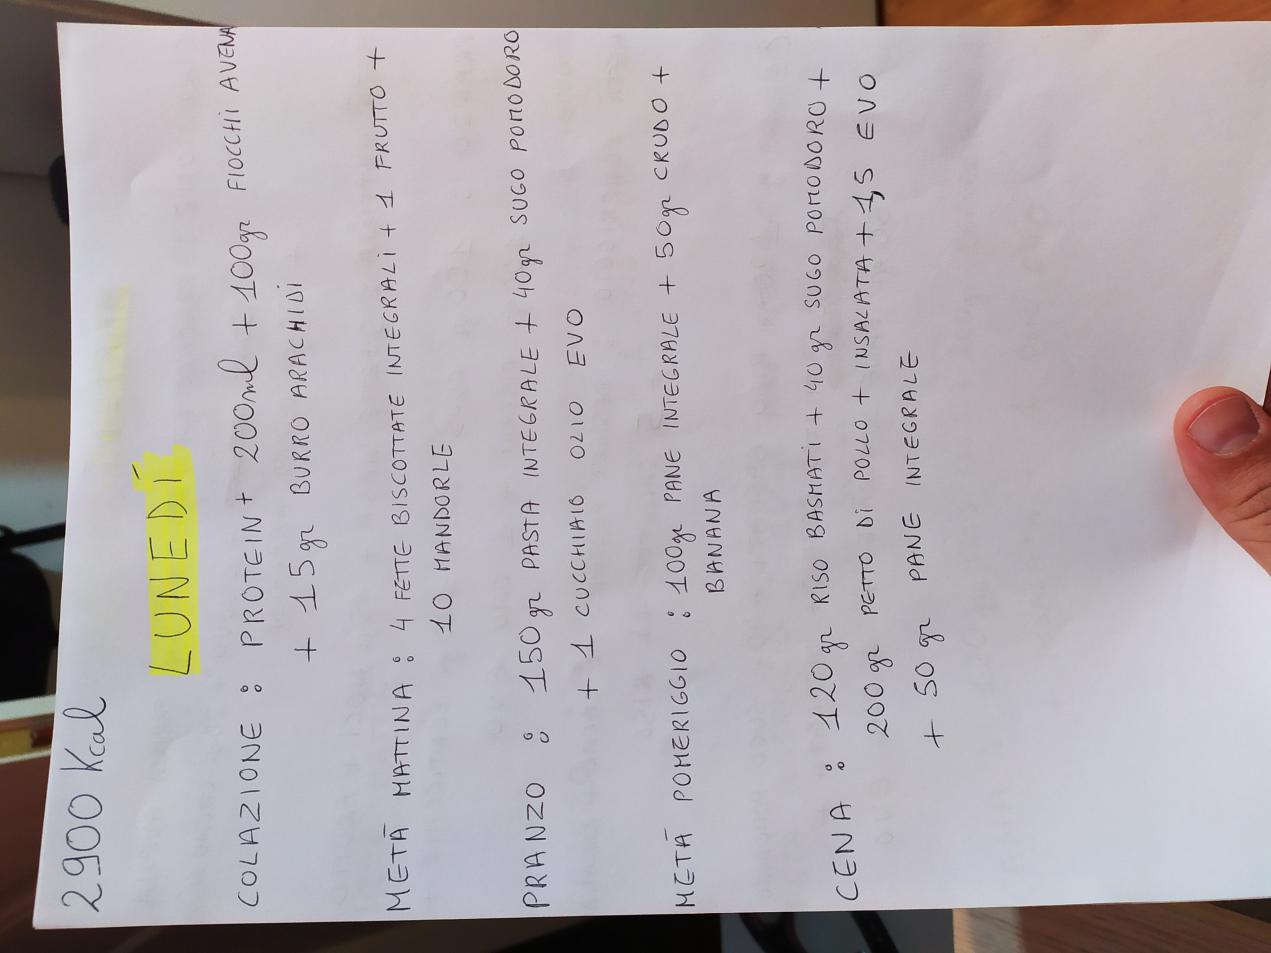 2900 Kcal
LUNEDÍ
COLAZIONE : PROTEIN + 200ml + 100gr FIOCCHI AVENA
+ 15gr BURRO ARACHIDI
METÀ MATTINA : 4 FETTE BISCOTTATE INTEGRALI + 1 FRUTTO +
10 MANDORLE
PRANZO : 150gr PASTA INTEGRALE + 40gr SUGO POMODORO
+ 1 CUCCHIAIO OLIO EVO
METÀ POMERIGGIO : 100gr PANE INTEGRALE + 50gr CRUDO +
BANANA
CENA : 120gr RISO BASMATI + 40gr SUGO POMODORO +
200gr PETTO DI POLLO + INSALATA + 1,5 EVO
+ 50 gr PANE INTEGRALE